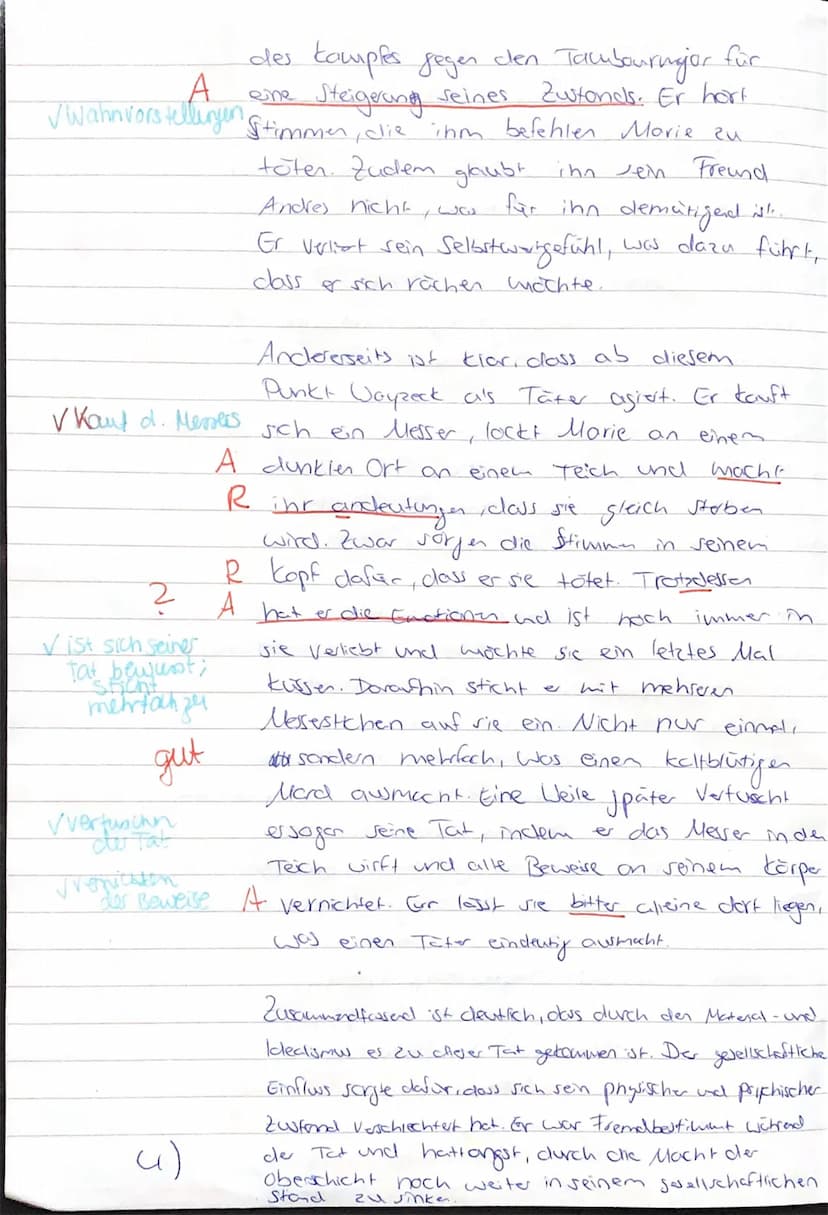 des Kampfes gegen den Tambourmajor für
A eine Steigerung seines Zustands. Er hört
√Wahnvorstellungen Stimmen, die ihm befehlen Marie zu
töten. Zudem glaubt ihn sein Freund
Andres nicht, was für ihn demütigend ist.
Er verliert sein Selbstwertgefühl, was dazu führt,
dass er sich rächen möchte.
Andererseits ist klar, dass ab diesem
Punkt Woyzeck als Täter agiert. Er kauft
√ Kauf d. Messers sich ein Messer, lockt Marie an einem
A dunklen Ort an einem Teich und macht
R ihr andeutungen, dass sie gleich sterben
wird. Zwar sorgen die Stimmen in seinem
R Kopf dafür, dass er sie tötet. Trotzdessen
? A hat er die Emotionen und ist noch immer in
√ ist sich seiner sie verliebt und möchte sie ein letztes Mal
Tat bewusst; küssen. Daraufhin sticht er mit mehreren
sticht
mehrfach zu Messestichen auf sie ein. Nicht nur einmal,
gut sondern mehrfach, was einen kaltblütigen
Mord ausmacht. Eine Weile später vertuscht
√vertuschen er sogar seine Tat, indem er das Messer in den
der Tat Teich wirft und alle Beweise an seinem Körper
√vernichten
der Beweise A vernichtet. Er lässt sie bitter alleine dort liegen,
was einen Täter eindeutig ausmacht.
Zusammendfassend ist deutlich, dass durch den Material- und
Idealismus es zu dieser Tat gekommen ist. Der gesellschaftliche
Einfluss sorgte dafür, dass sich sein physischer und psychischer
Zustand verschlechtert hat. Er war Fremdbestimmt während
4) der Tat und hatt angst, durch die Macht der
Oberschicht noch weiter in seinem gesellschaftlichen
Stand zu sinken.